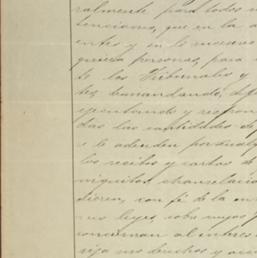 ralmente para todos
tenciones, que en la a
entes y en lo sucesivo
quiera personas, para
to los Tribunales y
tes demandando, def
ejecutando y respon
das las cantidades de
o le adeuden por cualq
los recibos y cartas de
niquitos, chancelacio
dieren, con fé de la en
nus leyes cobre
conviniere al interes
rija sus derechos y acci